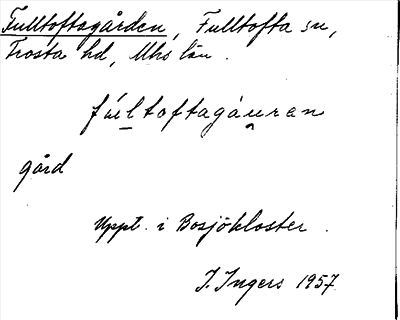 Fulltoftagården, Fulltofta sn,
Frosta hd, Mhs län.
fúltoftagáu̯ran
gård
Uppt. i Bosjökloster.
I. Ingers 1957